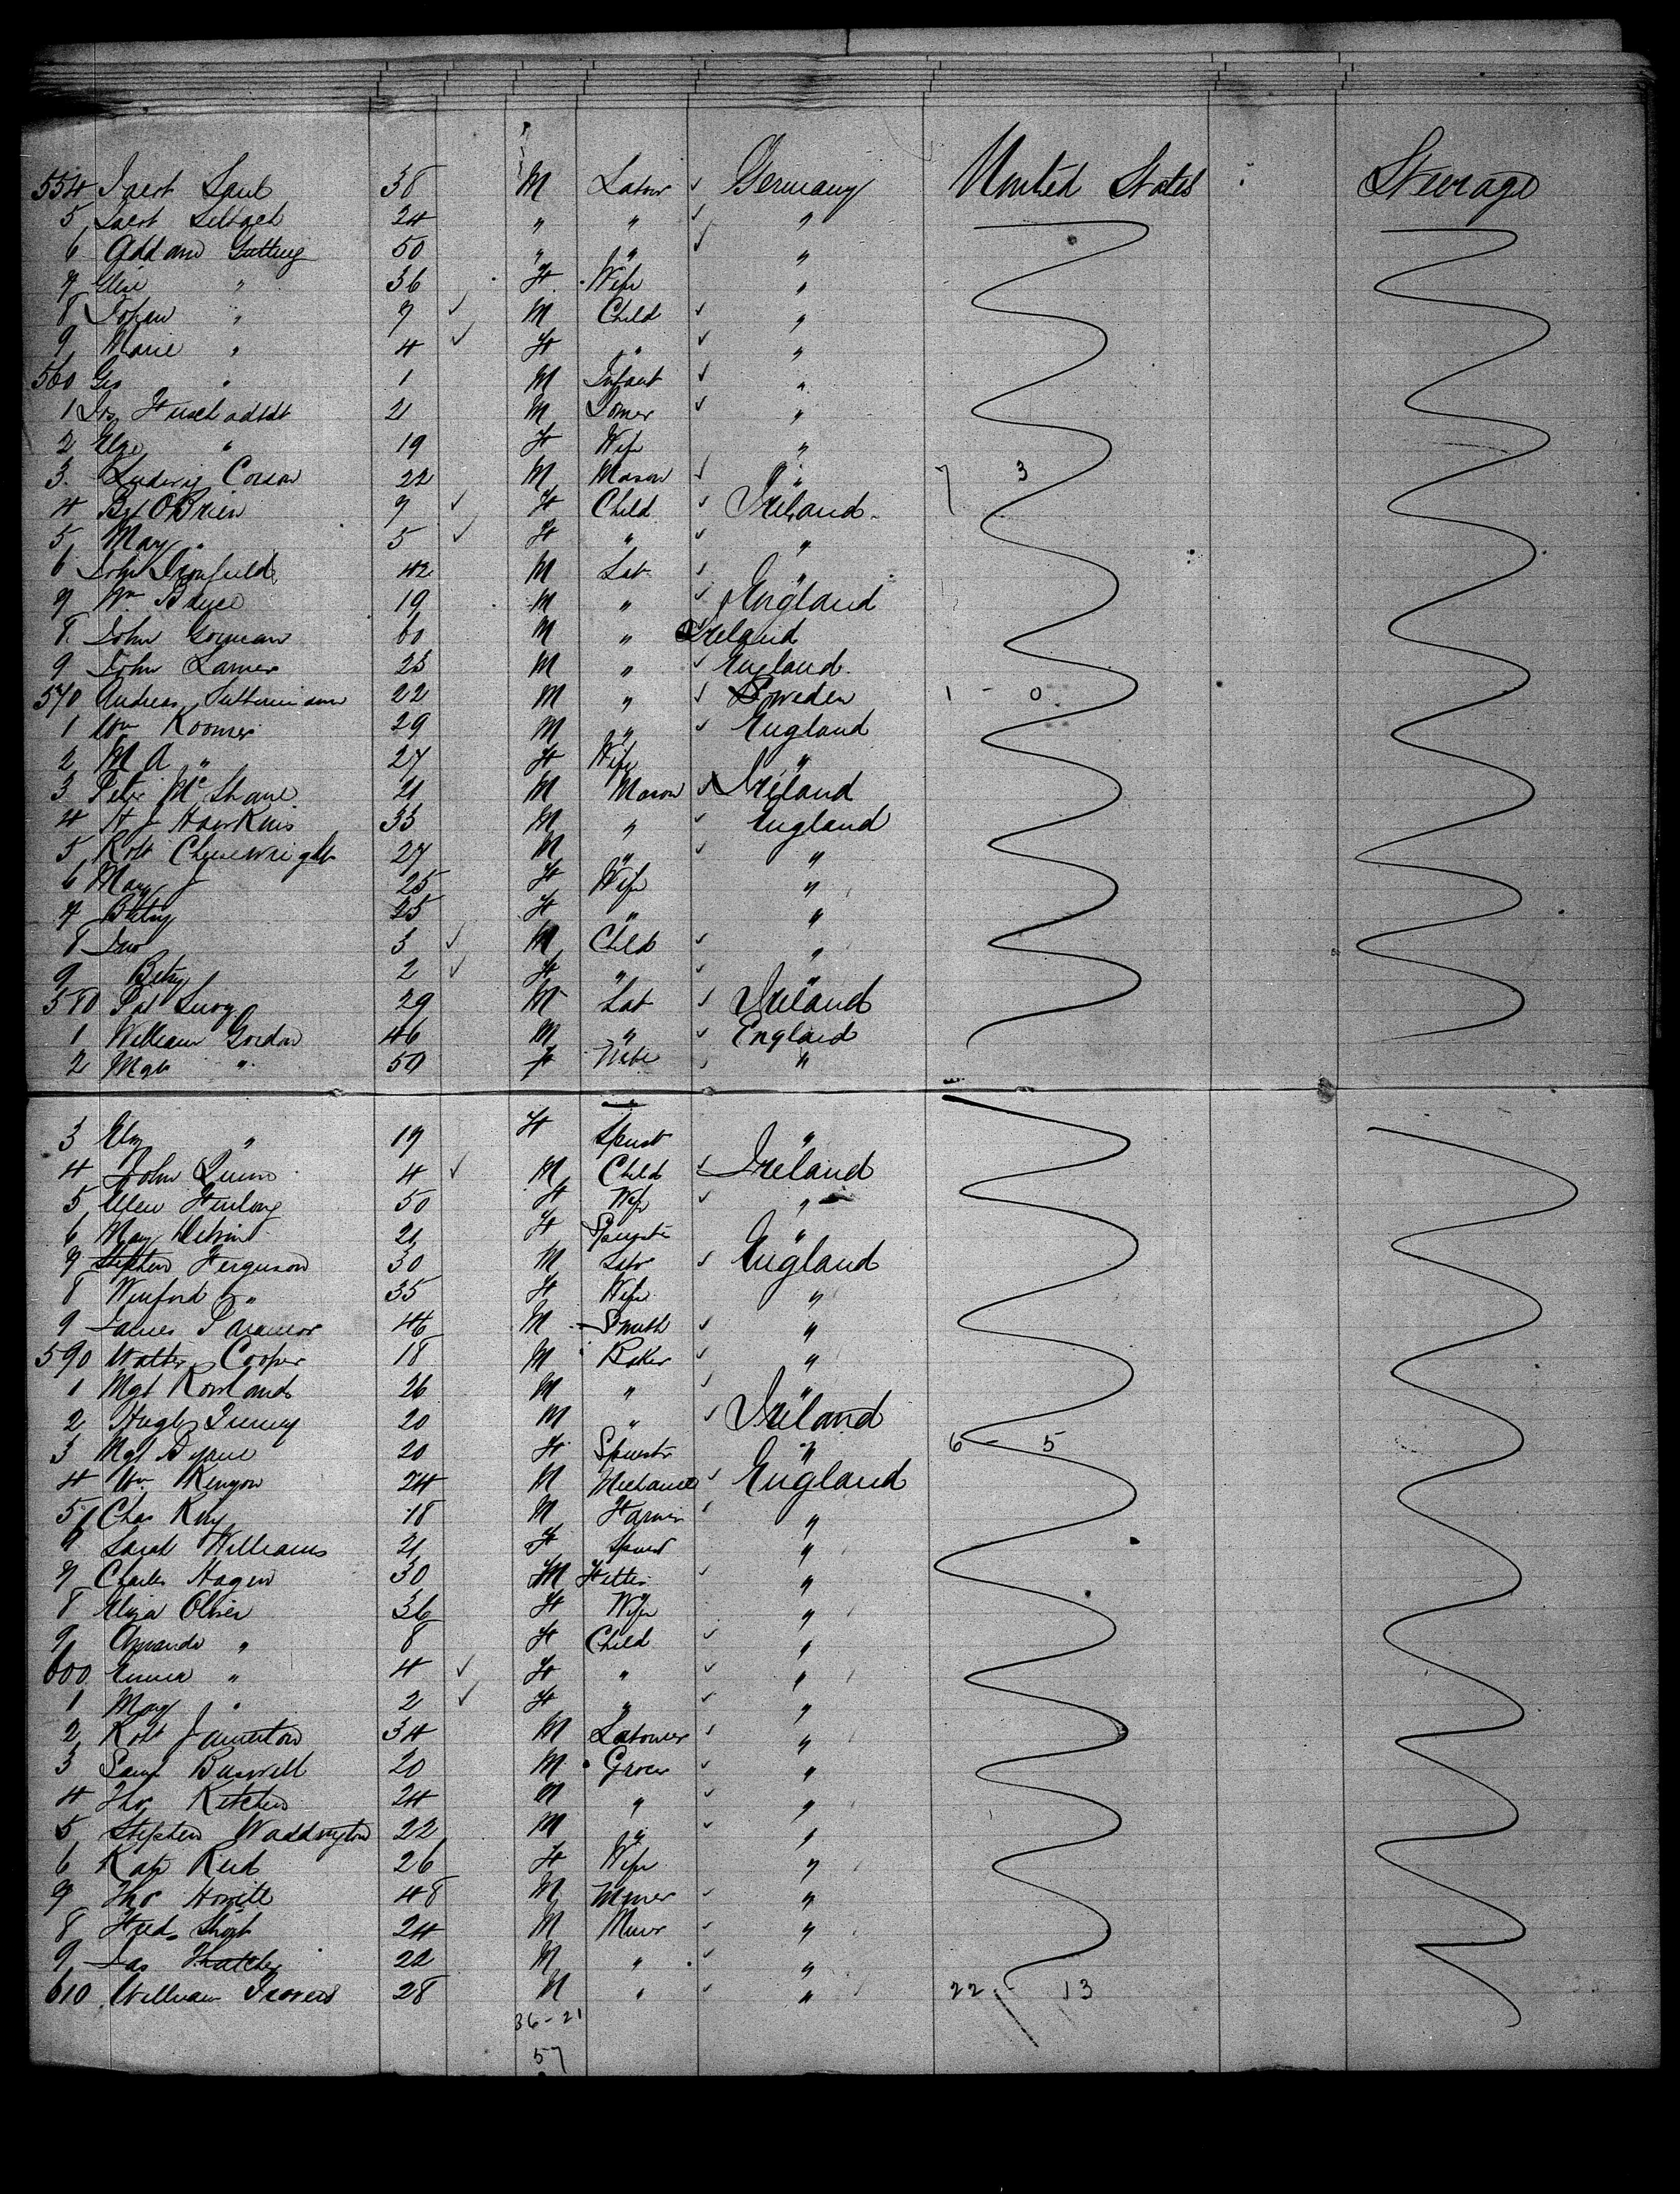 554 Saul 38 M Labour ✓ Germany United States Steerage
5 24 " " ✓ "
6 Addam Gutting 50 " " ✓ "
7 Elise " 36 F Wife "
8 Johan " 7 ✓ M Child ✓ "
9 Marie " 4 ✓ F " ✓ "
560 Geo " 1 M Infant ✓ "
1 21 M ✓ "
2 " 19 F Wife "
3 Ludwig Corson 22 M Mason ✓ " 7 3
4 O'Brien 7 ✓ F Child ✓ Ireland
5 Mary " 5 ✓ F " ✓ "
6 John 42 M Lab ✓ "
7 Wm Bruce 19 M " ✓ England
8 John Gorman 60 M " Ireland
9 John 23 M " ✓ England
570 Andreas 22 M " ✓ Sweden 1 - 0
1 Wm Koomer 29 M " ✓ England
2 M A " 27 F Wife "
3 Peter McShane 21 M Mason ✓ Ireland
4 H J Hawkins 33 M " ✓ England
5 Robt Chesewright 27 M " ✓ "
6 Mary J 25 F Wife "
7 Betsy 25 F " "
8 Jno 3 ✓ M Child ✓ "
9 Betsy 2 ✓ F " ✓ "
580 Pat 29 M Lab ✓ Ireland
1 William Gordon 46 M " ✓ England
2 Mgt " 50 F Wife "
3 Eliz " 19 F Spinst "
4 John Quinn 4 ✓ M Child ✓ Ireland
5 Ellen Furlong 50 F Wife ✓ "
6 Mary 21 F Spinster "
7 Stephen Ferguson 30 M Labr ✓ England
8 Winford " 35 F Wife "
9 James 46 M Smith ✓ "
590 Walter Cooper 18 M Baker ✓ "
1 Mgt Rowlands 26 M " ✓ "
2 Hugh 20 M " ✓ Ireland
3 Mgt 20 F Spinstr " 6 - 5
4 Wm Kenyon 24 M Mechanic ✓ England
5 Chas King 18 M Farmer ✓ "
6 Sarah Williams 21 F Spinst "
7 Charles Hagen 30 M ✓ "
8 Eliza Oliver 36 F Wife "
9 Amanda " 8 F Child ✓ "
600 Emma " 4 ✓ F " ✓ "
1 Mary " 2 ✓ F " ✓ "
2 Robt 34 M Labourer ✓ "
3 Saml Buswell 20 M Grocer ✓ "
4 Tho Kitchen 24 M " ✓ "
5 Stephen Waddington 22 M " ✓ "
6 Kate Reid 26 F Wife "
7 Tho Howitt 48 M Miner ✓ "
8 Fred Short 24 M Miner ✓ "
9 Jas Thatcher 22 M " ✓ "
610 William Travers 28 M " ✓ " 22 - 13
36-21
57